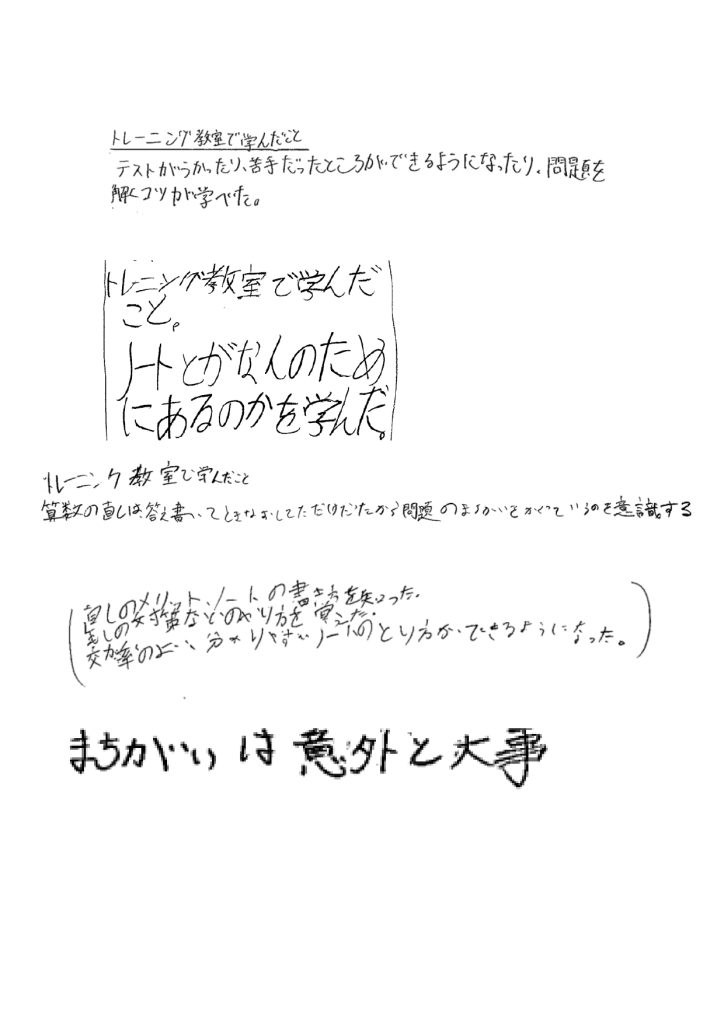 トレーニング教室で学んだこと
テストがうかったり、苦手だったところができるようになったり、問題を
解くコツが学べた。
トレーニング教室で学んだ
こと。
ノートとがなんのため
にあるのかを学んだ。
トレーニング教室で学んだこと
算数の直しは答え書いてときなおしてただけだったから問題のまちがいをかくっているのを意識する
直しのメリット、ノートの書き方を知った。
直しの対策などのやり方を覚えた。
効率のよい、分かりやすいノートのとり方ができるようになった。
まちがいは意外と大事